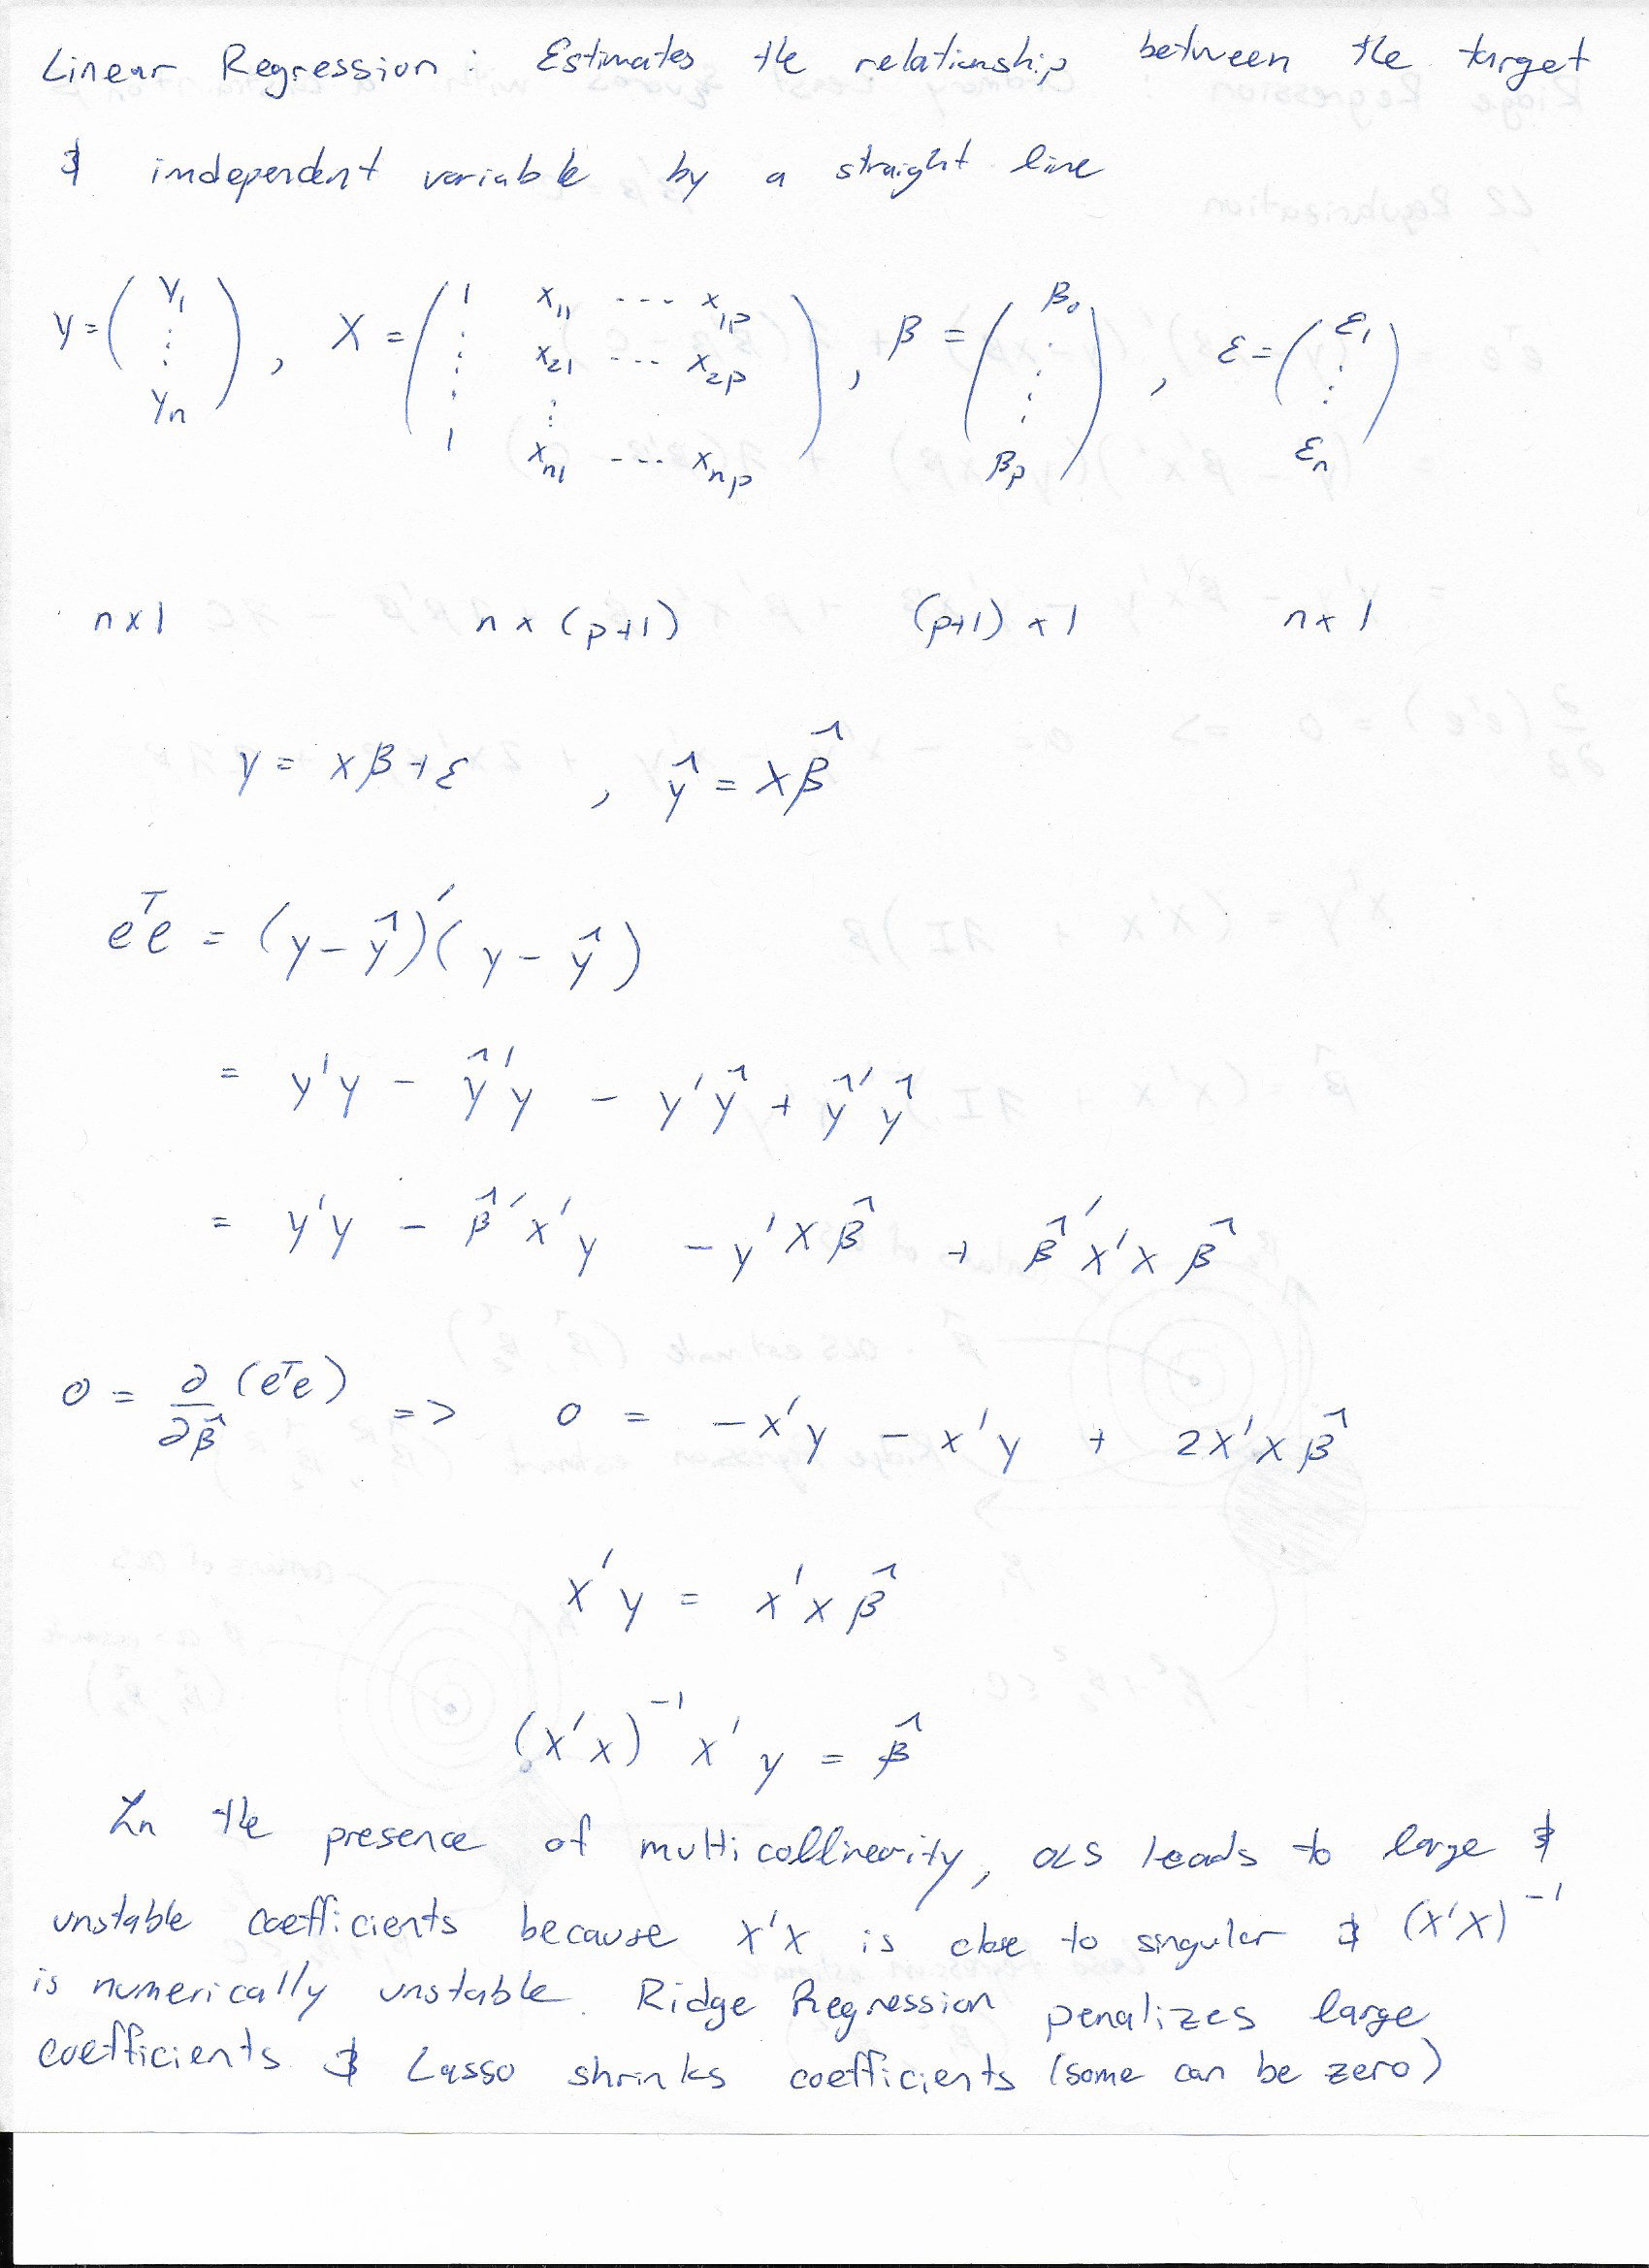 Linear Regression : Estimates the relationship between the target
& independent variable by a straight line
y = ( y₁ ⋮ yₙ ) , X = ( 1 x₁₁ --- x₁ₚ ⋮ x₂₁ --- x₂ₚ ⋮ 1 xₙ₁ --- xₙₚ ) , β = ( β₀ ⋮ βₚ ) , ε = ( ε₁ ⋮ εₙ )
n x 1 n x (p+1) (p+1) x 1 n x 1
y = xβ + ε , ŷ = Xβ̂
eᵀe = (y - ŷ)'(y - ŷ)
= y'y - ŷ'y - y'ŷ + ŷ'ŷ
= y'y - β̂'x'y - y'xβ̂ + β̂'x'xβ̂
0 = ∂/∂β̂ (eᵀe) => 0 = -x'y - x'y + 2x'xβ̂
x'y = x'xβ̂
(x'x)⁻¹ x'y = β̂
In the presence of multicollinearity, OLS leads to large &
unstable coefficients because x'x is close to singular & (x'x)⁻¹
is numerically unstable. Ridge Regression penalizes large
coefficients & Lasso shrinks coefficients (some can be zero)